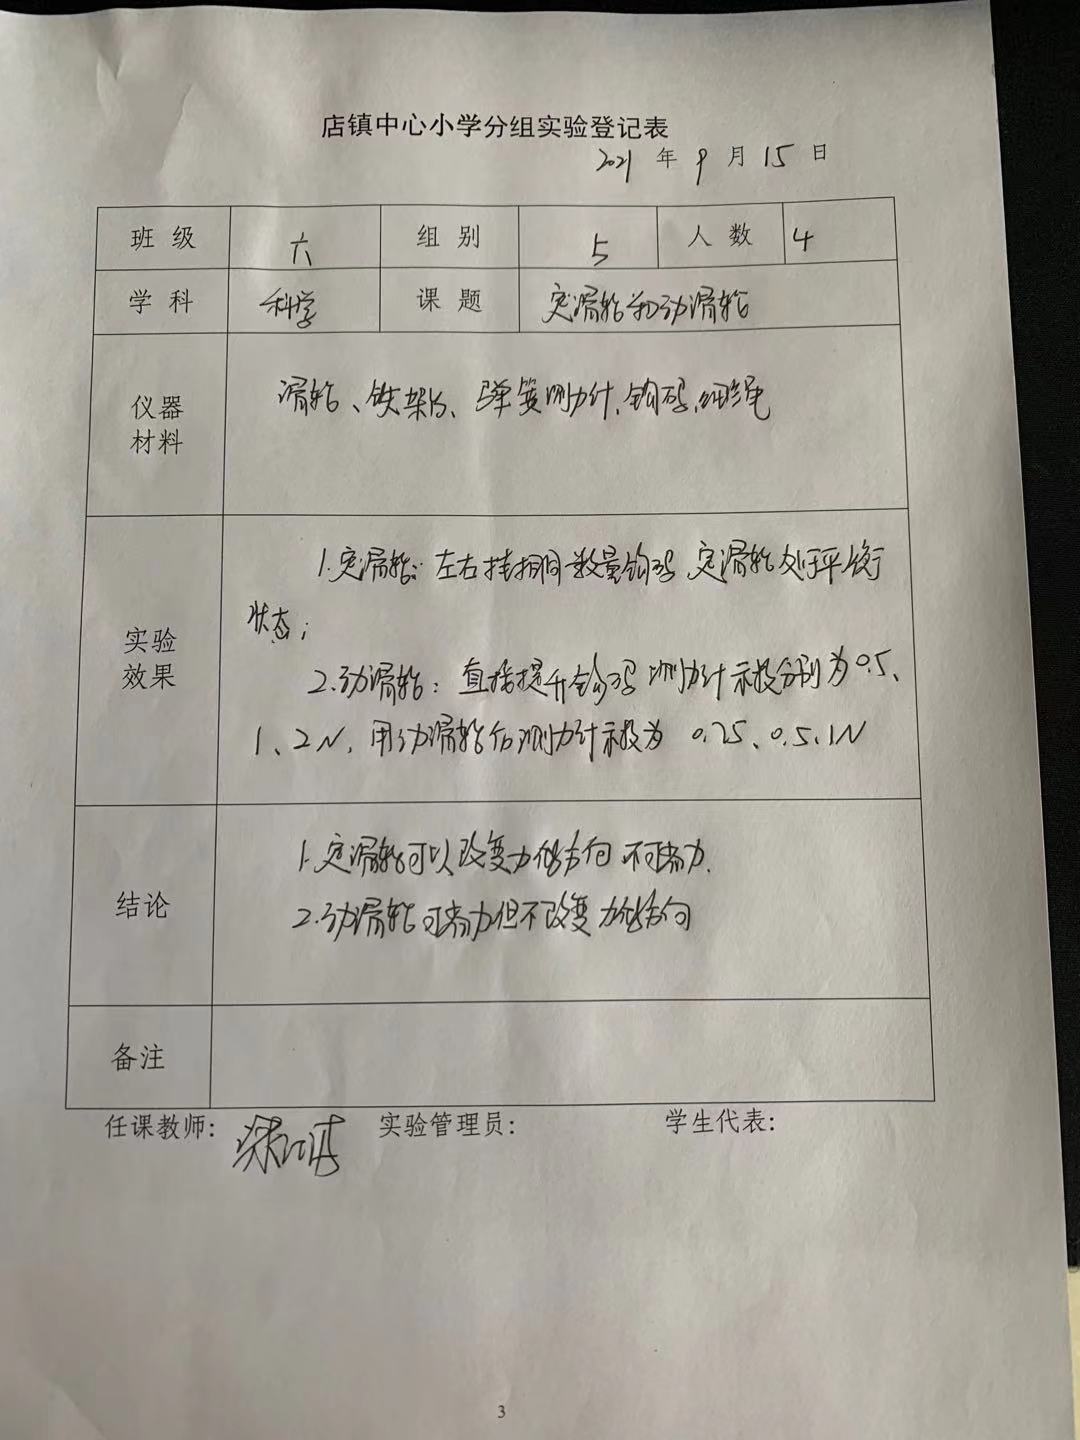 店镇中心小学分组实验登记表
2021 年 9 月 15 日
班 级 六 组 别 5 人 数 4
学 科 科学 课 题 定滑轮和动滑轮
仪器
材料
滑轮、铁架台、弹簧测力计、钩码、细绳
实验
效果
1.定滑轮:左右挂相同数量钩码,定滑轮处于平衡
状态;
2.动滑轮:直接提升钩码测力计示数分别为0.5、
1、2N,用动滑轮后测力计示数为 0.25、0.5、1N
结论
1.定滑轮可以改变力的方向 不可省力.
2.动滑轮可省力但不改变力的方向
备注
任课教师: 实验管理员: 学生代表:
3